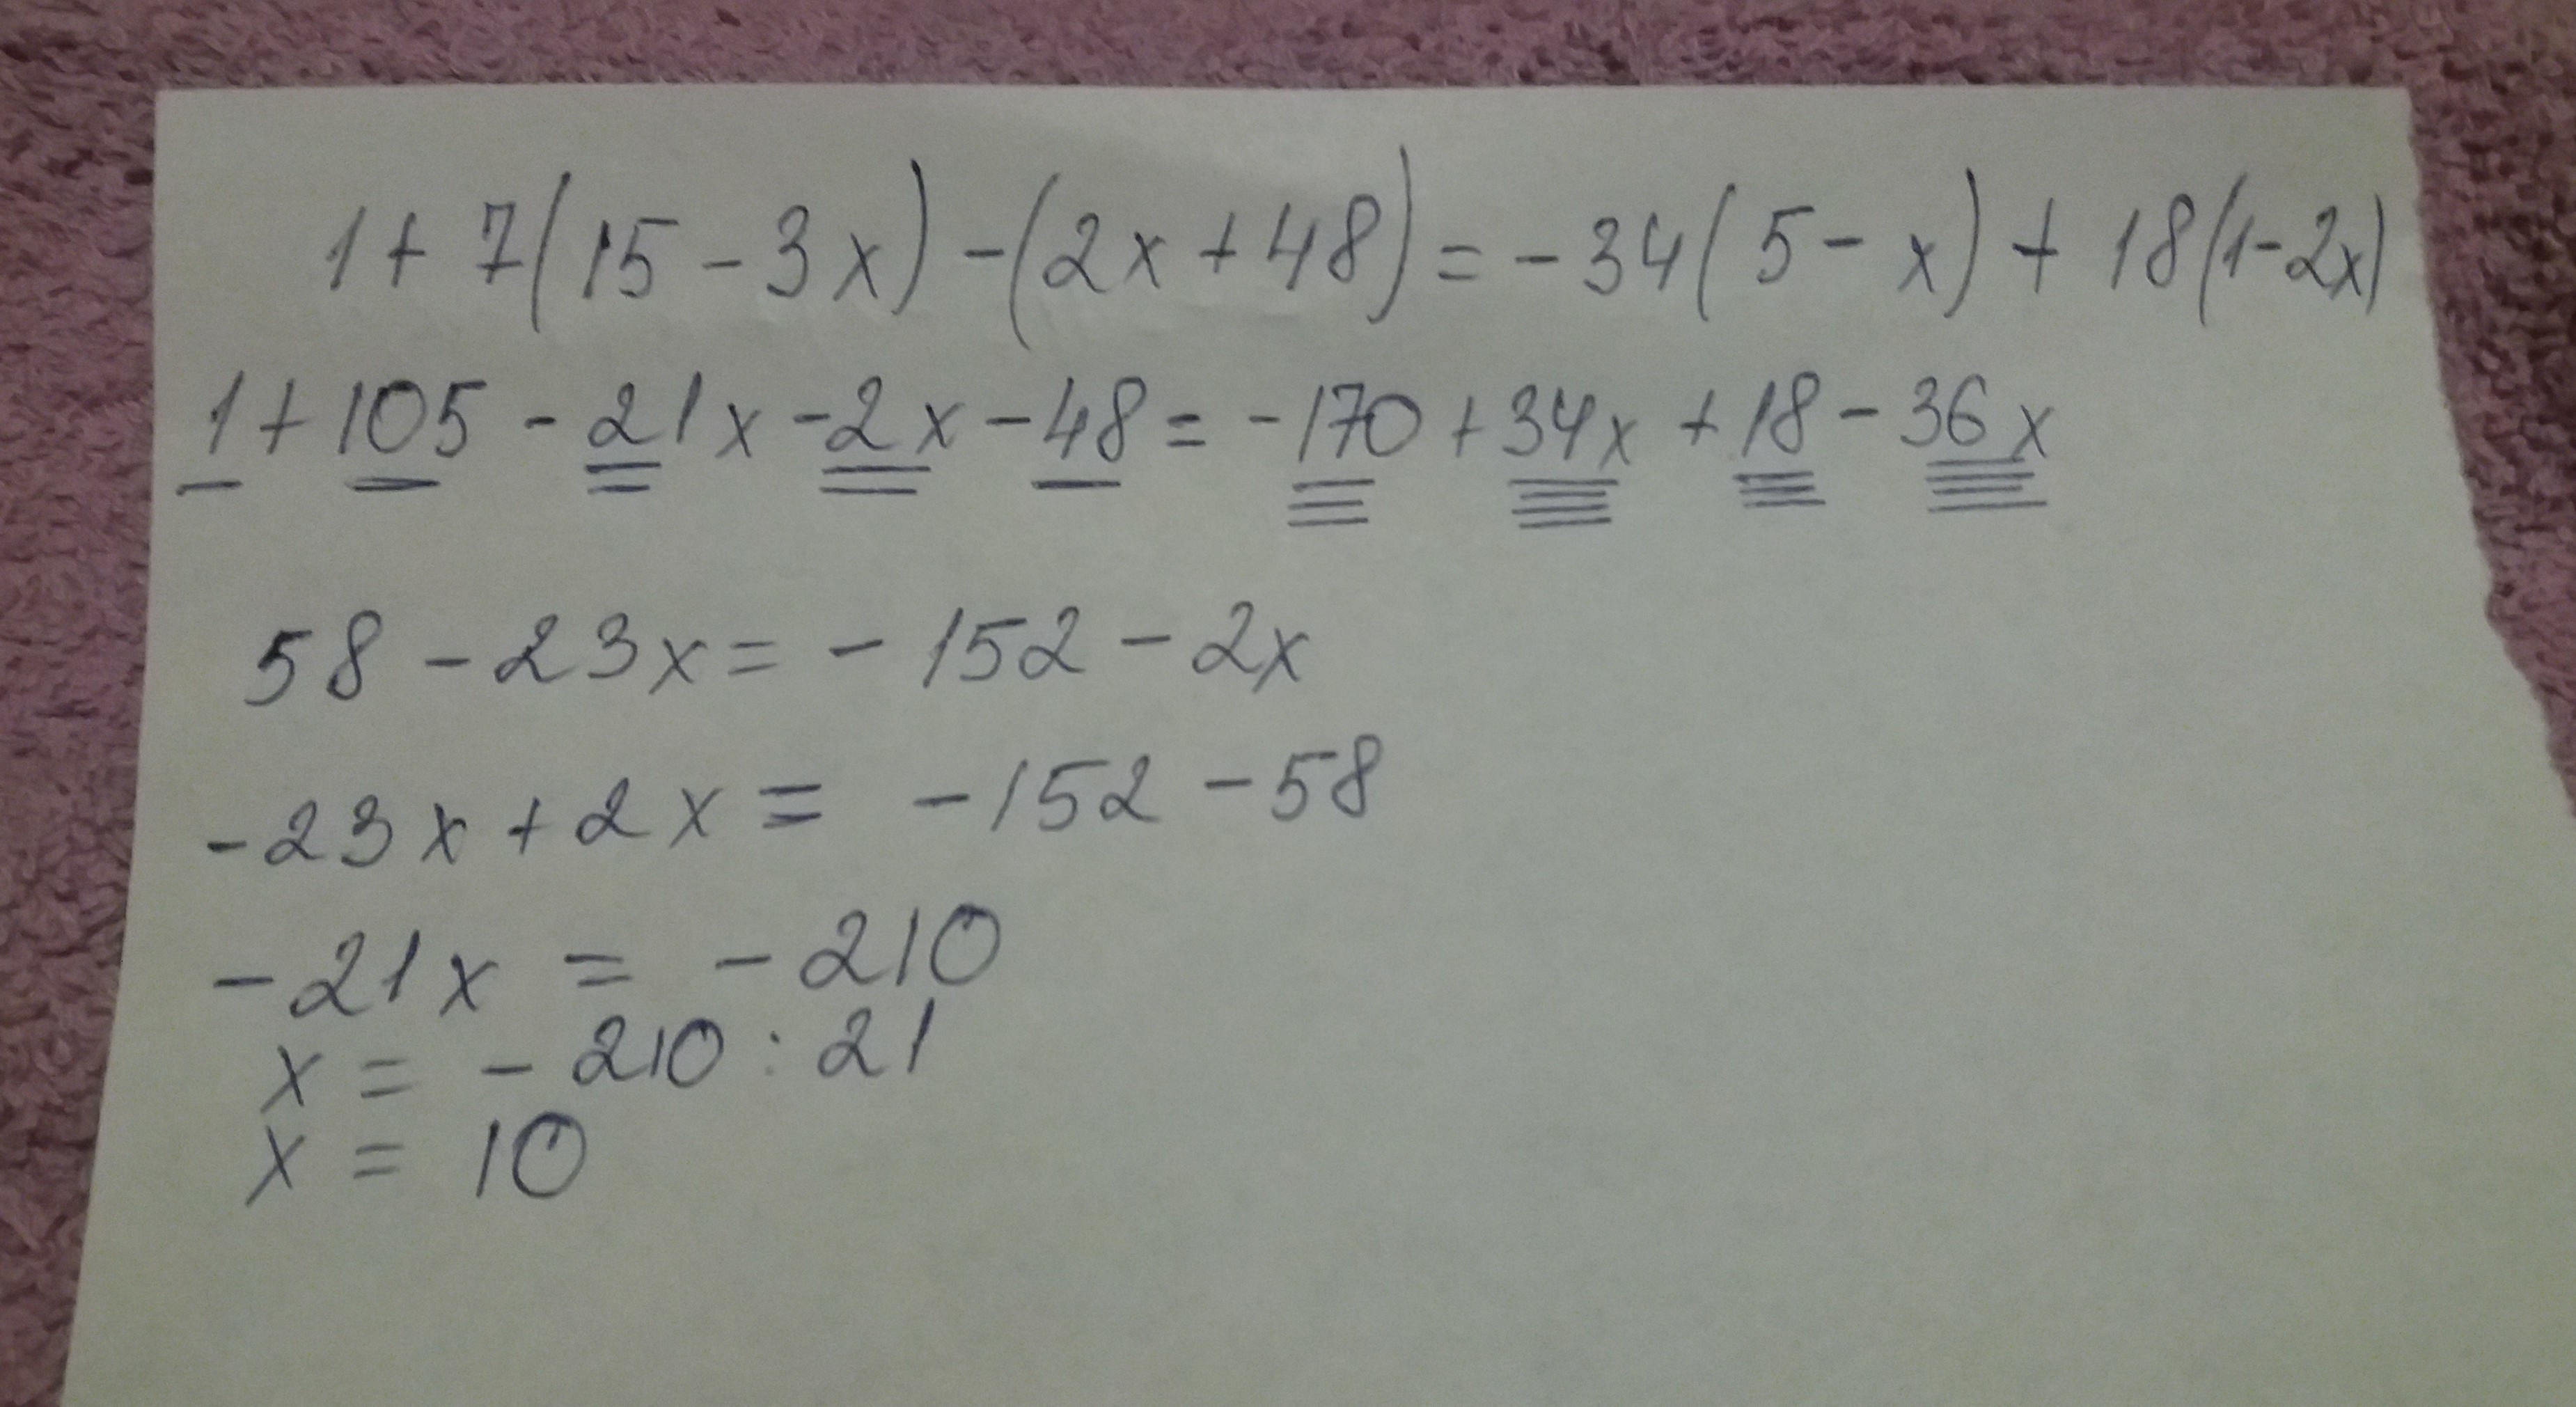 1 + 7(15 - 3x) - (2x + 48) = - 34(5 - x) + 18(1 - 2x)
1 + 105 - 21x - 2x - 48 = - 170 + 34x + 18 - 36x
58 - 23x = - 152 - 2x
- 23x + 2x = - 152 - 58
- 21x = - 210
x = - 210 : 21
x = 10